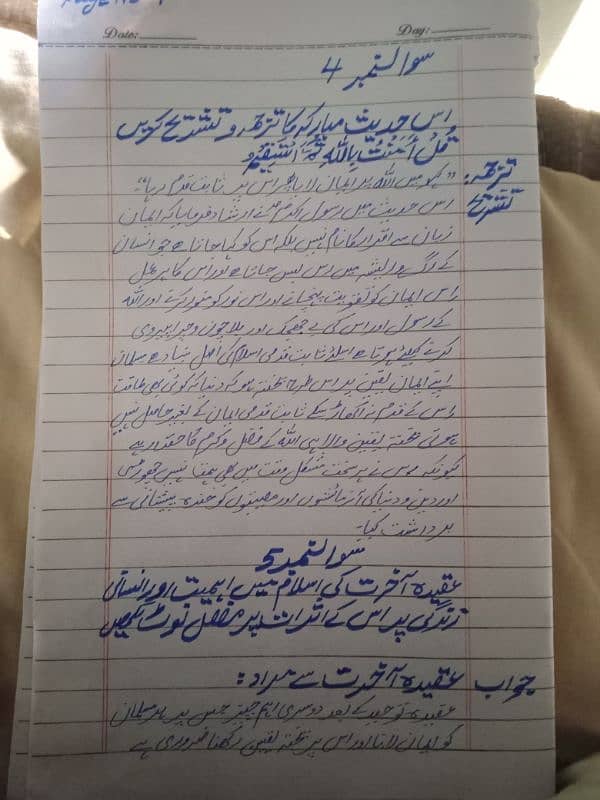 Date:
Day:
سوال نمبر 4
اس حدیث مبارکہ کا ترجمہ و تشریح کریں
قُلْ اٰمَنْتُ بِاللّٰهِ ثُمَّ اسْتَقِمْ
ترجمہ: "کہو میں اللہ پر ایمان لایا پھر اس پر ثابت قدم رہا"۔
تشریح اس حدیث میں رسول اکرمؐ نے ارشاد فرمایا کہ ایمان
زبان سے اقرار کا نام نہیں بلکہ اس کو کہا جاتا ہے جو انسان
کے رگ و ریشہ میں رس بس جاتا ہے اور اس کا ہر عمل
اس ایمان کو تقویت پہنچائے اور اس نور کو منور کرے اور اللہ
کے رسول اور اس کی بے جھجک اور بلا چون و چرا پیروی
کرنے کیلئے ہوتا ہے اسلئے ثابت قدمی اسلام کی اصل بنیاد ہے مسلمان
اپنے ایمان یقین پر اس طرح پختہ ہو کہ دنیا کی کوئی بھی طاقت
اس کے قدم نہ اکھاڑ سکے ثابت قدمی ایمان کے بغیر حاصل نہیں
ہوتی پختہ یقین والا ہی اللہ کے فضل و کرم کا حقدار ہے
کیونکہ مومن نے ہر سخت مشکل وقت میں بھی ہمت نہیں چھوڑی
اور دین و دنیا کی آزمائشوں اور مصیبتوں کو خندہ پیشانی سے
برداشت کیا۔
سوال نمبر 5
عقیدہ آخرت کی اسلام میں اہمیت اور انسانی
زندگی پر اس کے اثرات پر مفصل نوٹ لکھیں
جواب عقیدہ آخرت سے مراد:
عقیدہ توحید کے بعد دوسری اہم چیز جس پر ہر مسلمان
کو ایمان لانا اور اس پر پختہ یقین رکھنا ضروری ہے